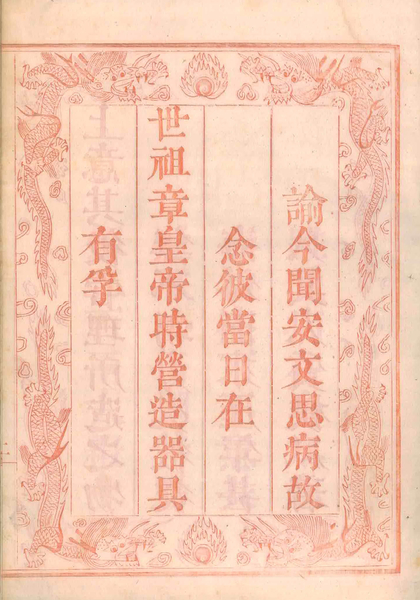 諭今聞安文思病故
念彼當日在
世祖章皇帝時營造器具
有孚